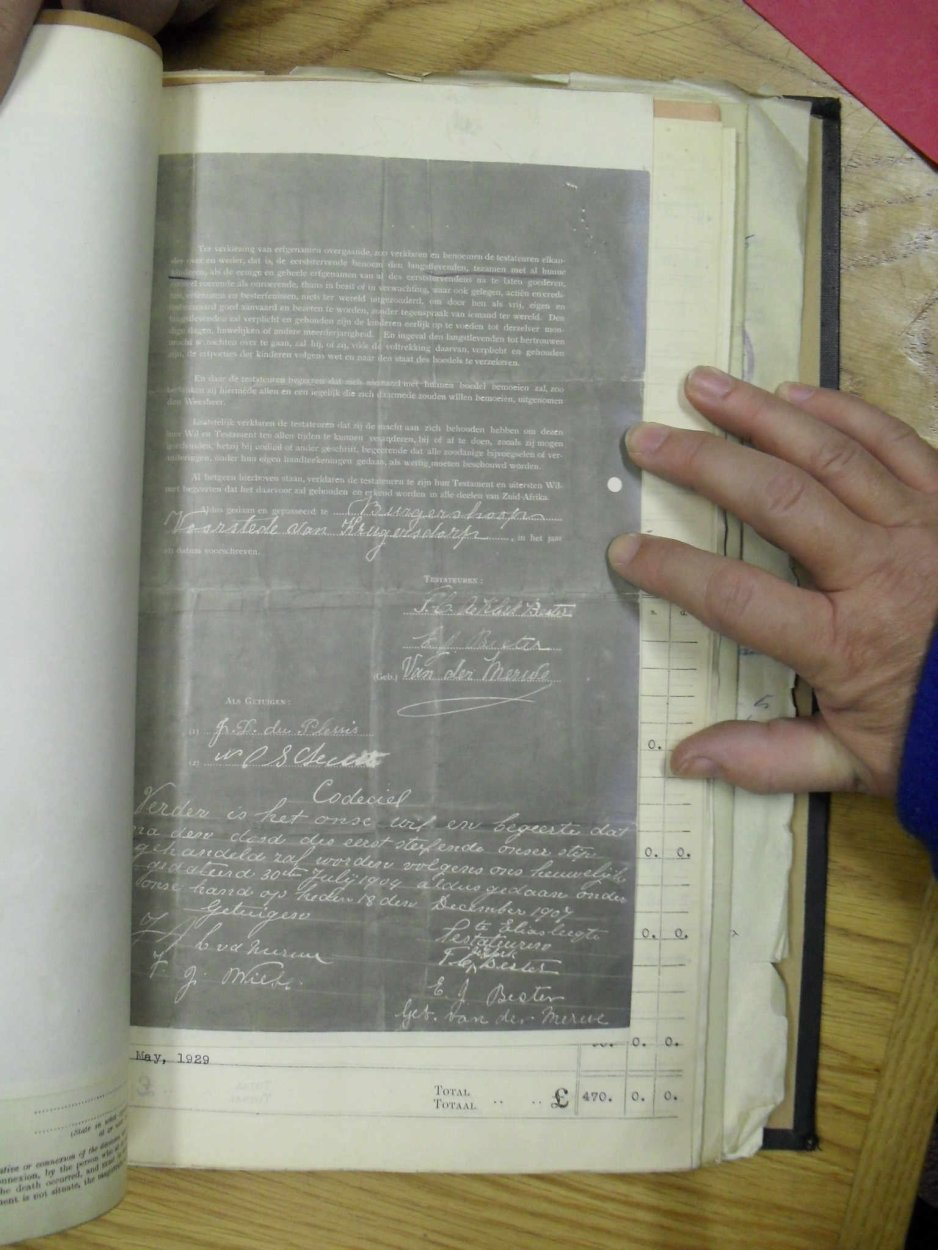 Ter verkiezing van erfgenamen overgaande, zoo verklaren en benoemen de testateuren elkan-
der over en weder, dat is, de eerststervende benoem den langstlevenden, tezamen met al hunne
kinderen, als de eenige en geheele erfgenamen van al des eerststervendens na te laten goederen,
roerende als onroerende, thans in bezit of in verwachting, waar ook gelegen, actiën en credi-
ten, erfenissen en besterfenissen, niets ter wereld uitgezonderd, om door hen als vrij, eigen en
goed aanvaard en bezeten te worden, zonder tegenspraak van iemand ter wereld. Den
langstlevenden zal verplicht en gehouden zijn de kinderen eerlijk op te voeden tot derzelver mon-
dige dagen, huwelijken of andere meerderjarigheid. En ingeval den langstlevenden tot hertrouwen
mocht te over te gaan, zal hij, of zij, vóór de voltrekking daarvan, verplicht en gehouden
zijn, de erfporties der kinderen volgens wet en naar den staat des boedels te verzekeren.
En daar de testateuren begeeren dat zich niemand met hunnen boedel bemoeien zal, zoo
zij hiermede allen en een iegelijk die zich daarmede zouden willen bemoeien, uitgenomen
den Weesheer.
Laatstelijk verklaren de testateuren dat zij de macht aan zich behouden hebben om dezen
hun Wil en Testament ten allen tijden te kunnen veranderen, bij of af te doen, zooals zij mogen
goedvinden, hetzij bij codicil of ander geschrift, begeerende dat alle zoodanige bijvoegselen of ver-
anderingen, onder hun eigen handteekeningen gedaan, als wettig moeten beschouwd worden.
Al hetgeen hierboven staan, verklaren de testateuren te zijn hun Testament en uitersten Wil
met begeerten dat het daarvoor zal gehouden en erkend worden in alle deelen van Zuid-Afrika.
Aldus gedaan en gepasseerd te Burgershoop
Voorstede van Krugersdorp, in het jaar
en datum voorschreven.
TESTATEUREN:
F. C. de Klerk Bester
E J Bester
(Geb.) Van der Merwe
ALS GETUIGEN:
(1) J. D. du Plessis
(2)
Codeciel
Verder is het onse wil en begeerte dat
na den dood des eerst sterfende onser
gehandeld zal worden volgens ons heuwelijk
gedateerd 30th July 1904 aldus gedaan onder
onse hand op heden 18 den December 1907
Getuigen te Eliasleegte
Testateuren
C v d Merwe
Bester
J.
E J Bester
Geb. van der Merwe
May, 1929
0.
0. 0.
0. 0.
0. 0.
TOTAL
TOTAAL .. .. £ 470. 0. 0.
(State in
or connexion of the deceased
connexion, by the person who
the death occurred, and must
ment is not situate, the magistrate